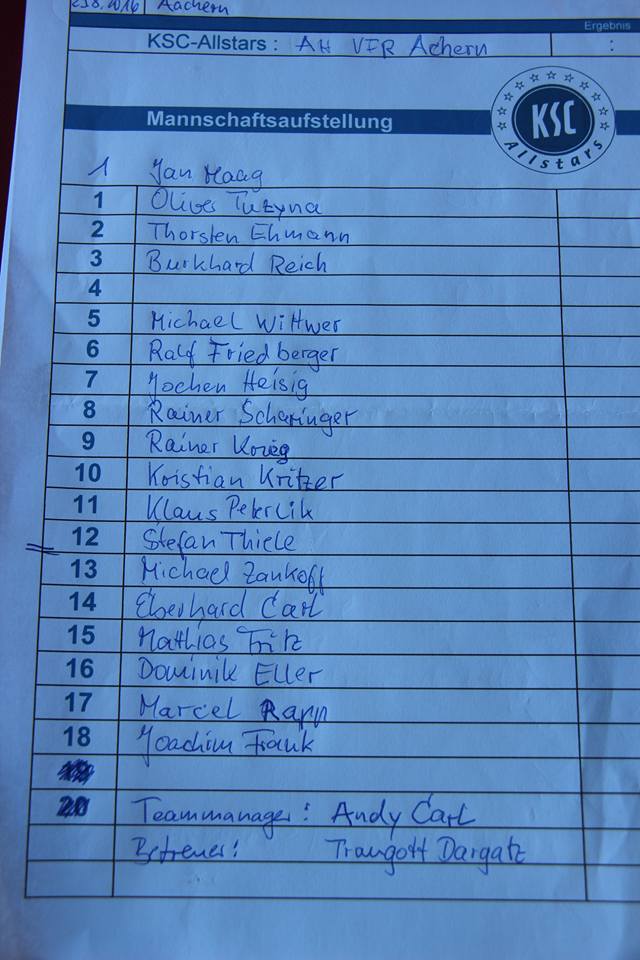 23.8.2016 Aachern
Ergebnis
KSC-Allstars : AH VFR Achern :
Mannschaftsaufstellung
KSC
Allstars
1 Jan Haag
1 Oliver Tuzyna
2 Thorsten Ehmann
3 Burkhard Reich
4
5 Michael Wittwer
6 Ralf Friedberger
7 Jochen Heisig
8 Rainer Scharinger
9 Rainer Krieg
10 Kristian Kritzer
11 Klaus Peterlik
12 Stefan Thiele
13 Michael Zankoff
14 Eberhard Carl
15 Mathias Fritz
16 Dominik Eller
17 Marcel Rapp
18 Joachim Frank
20 Teammanager: Andy Carl
Betreuer: Traugott Dargatz